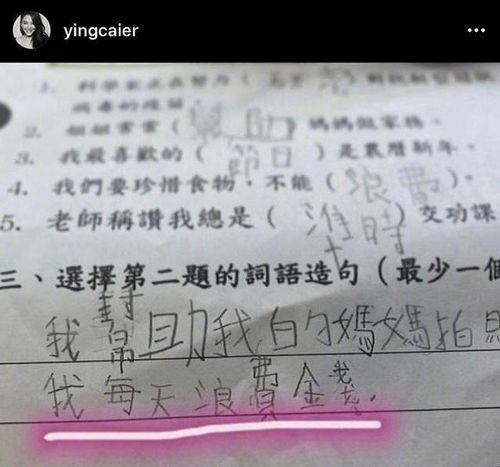 yingcaier
1. 科學家正在努力（
病毒的疫苗
2. 姐姐常常（幫助）媽媽做家務。
3. 我最喜歡的（節日）是農曆新年。
4. 我們要珍惜食物，不能（浪費）。
5. 老師稱讚我總是（準時）交功課
三、選擇第二題的詞語造句（最少一個
我幫助我的媽媽拍照
我每天浪費金錢.